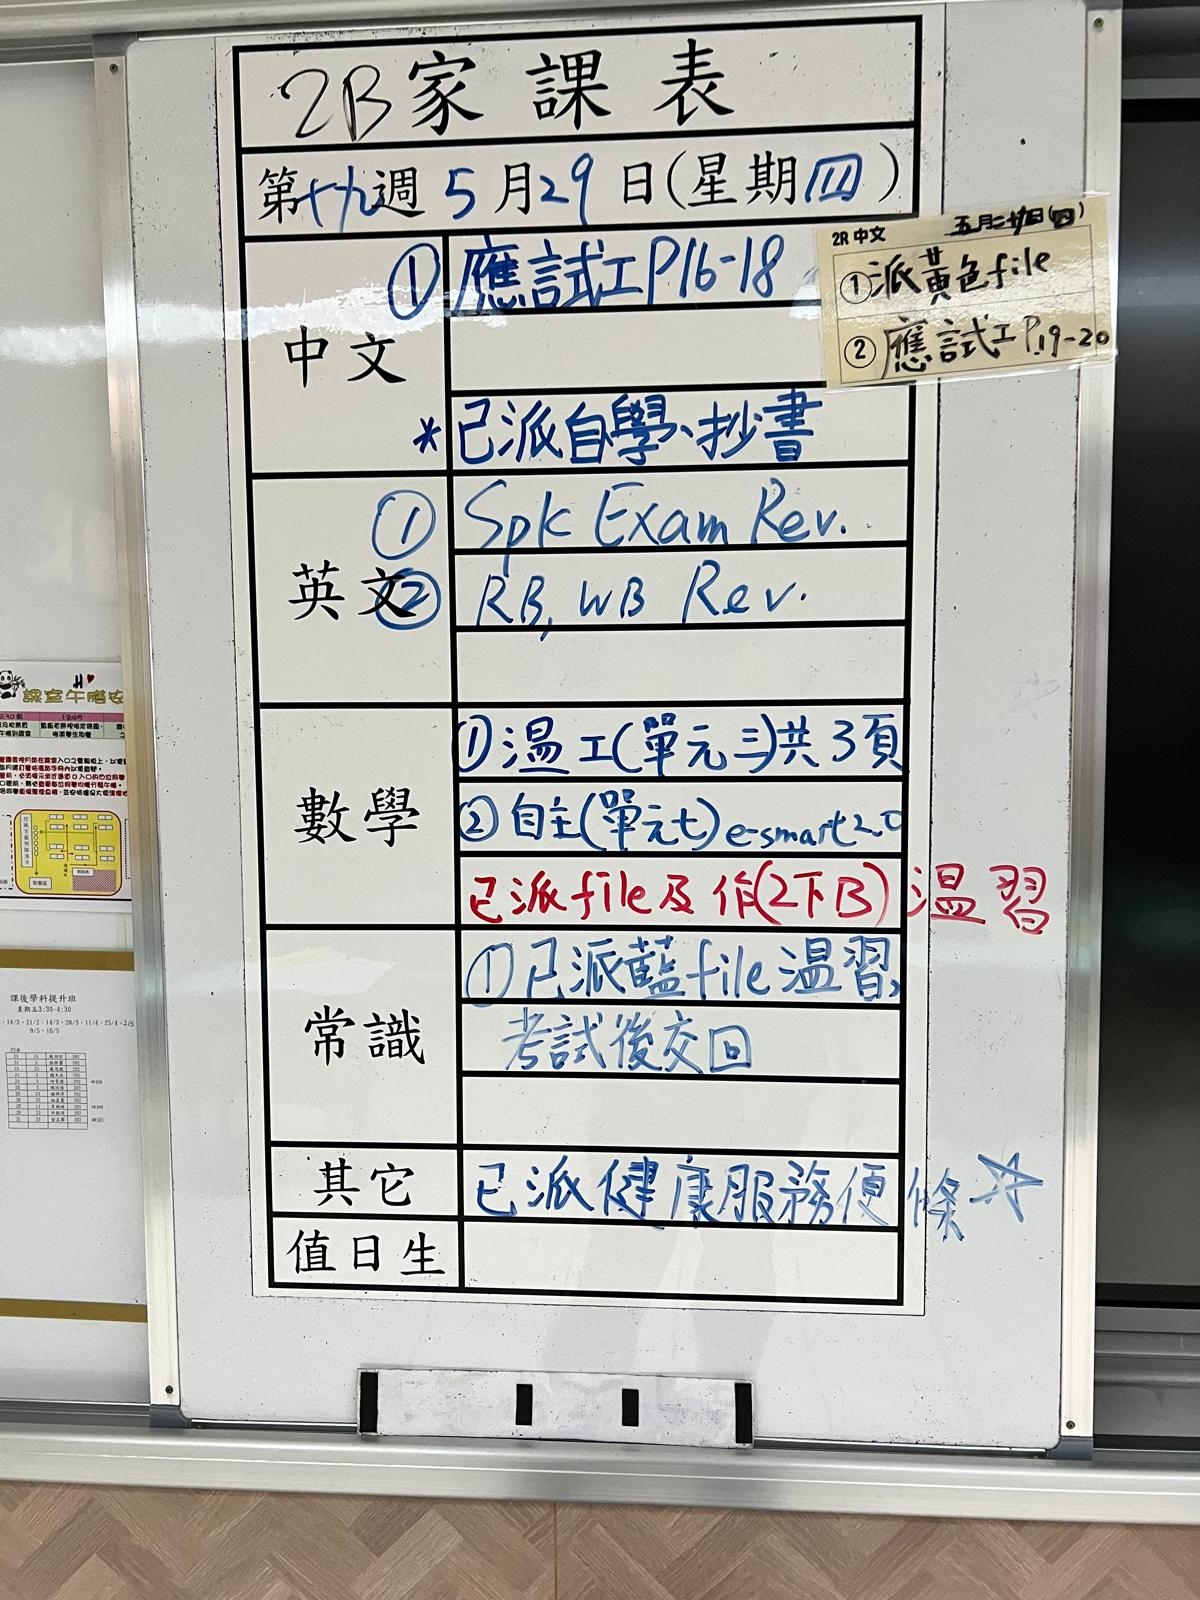 2B家課表
第十九週 5月29日(星期四)
中文
① 應試工P16-18
*已派自學、抄書
2R 中文
五月二十九日(四)
①派黃色file
②應試工P.19-20
英文
① Spk Exam Rev.
② RB, WB Rev.
數學
①溫工(單元三)共3頁
②自主(單元七)e-smart2.0
已派file及作(2下B)溫習
常識
①已派藍file溫習,
考試後交回
其它
已派健康服務便條☆
值日生
課室午膳安
12:45
課後學科提升班
星期五3:30-4:30
14/2、21/2、14/3、28/3、11/4、25/4、2/5
9/5、16/5